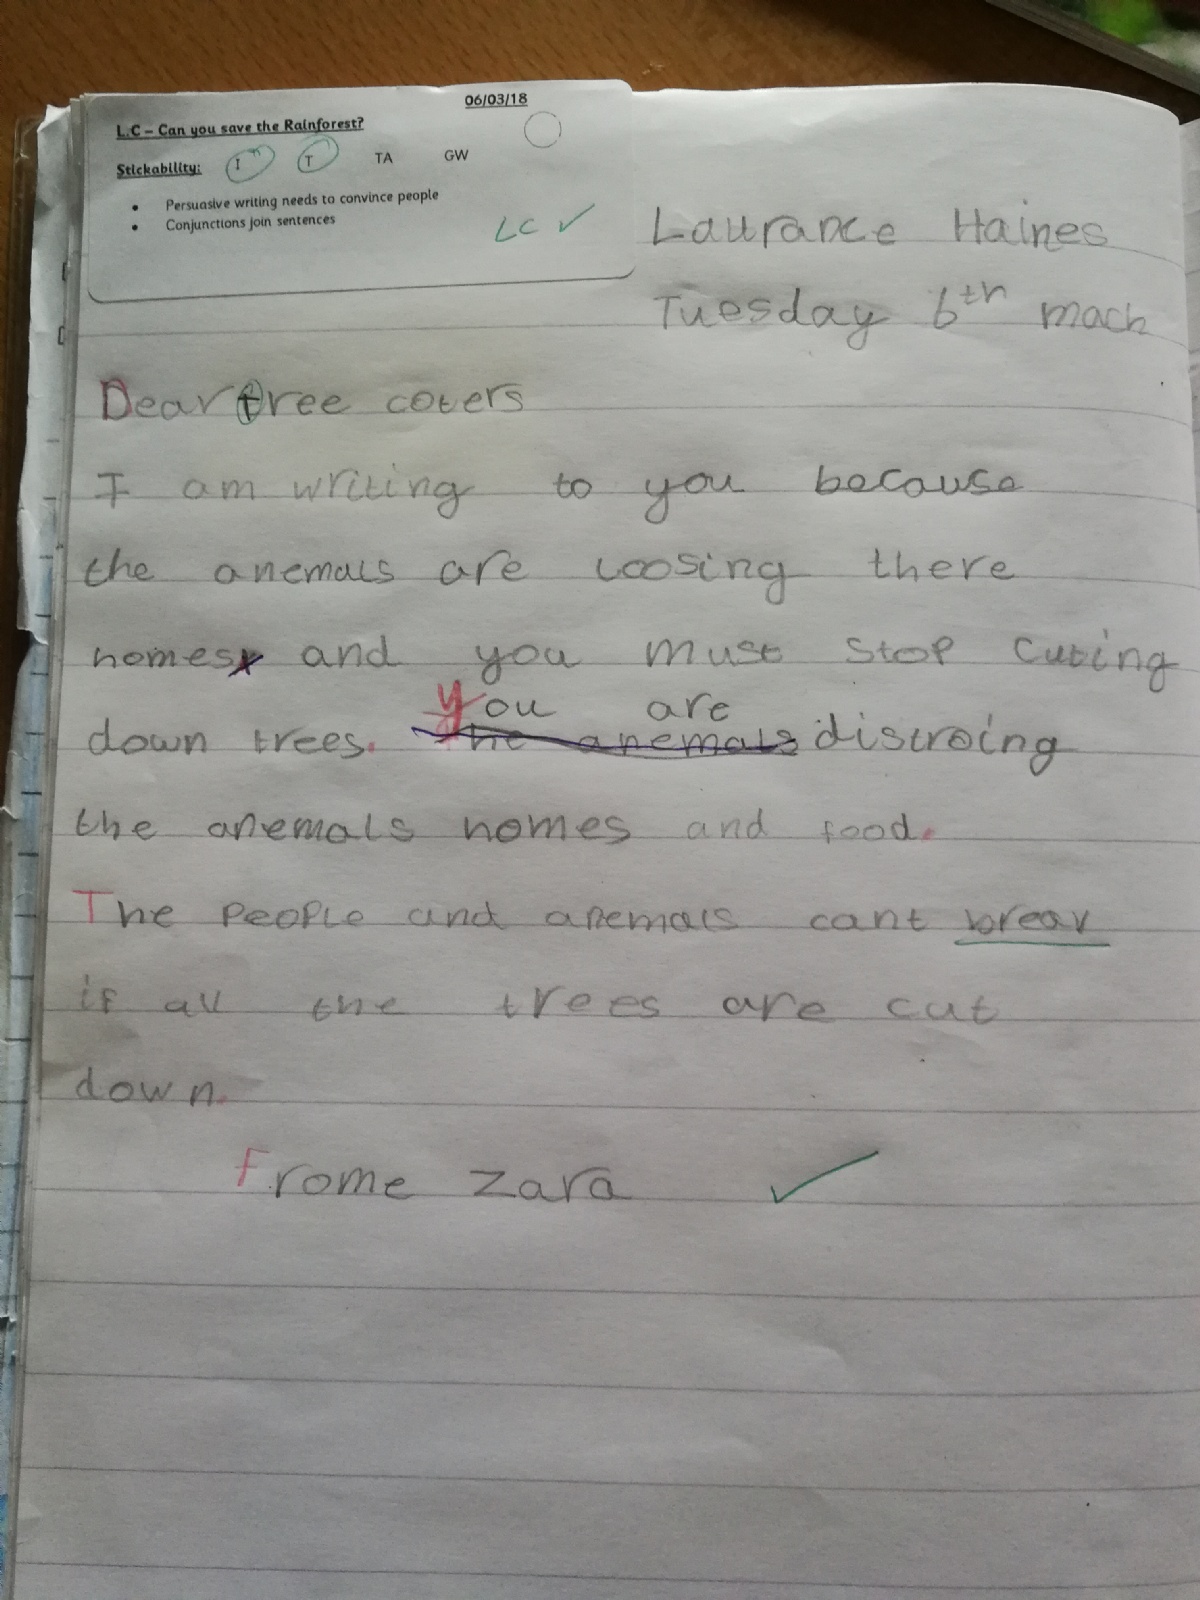 06/03/18
L.C – Can you save the Rainforest?
Stickability: I T TA GW
• Persuasive writing needs to convince people
• Conjunctions join sentences
LC ✓
Laurance Haines
Tuesday 6th mach
Dear tree coters
I am writing to you because
the anemals are loosing there
homes and you must stop cuting
down trees. the anemals
You are
distroing
the anemals homes and food.
The people and anemals cant breav
if all the trees are cut
down.
Frome Zara ✓